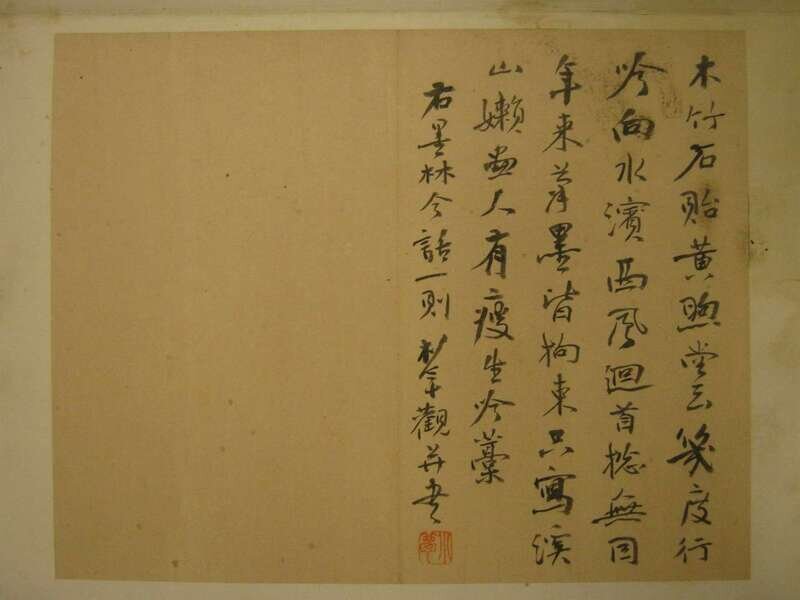 木竹石貽黃煦堂云幾度行
吟向水濱西風迴首捴無因
年來筆墨皆拘束只寫溪
山嬾畫人有瘦生吟藁
右墨林今話一則觀并書